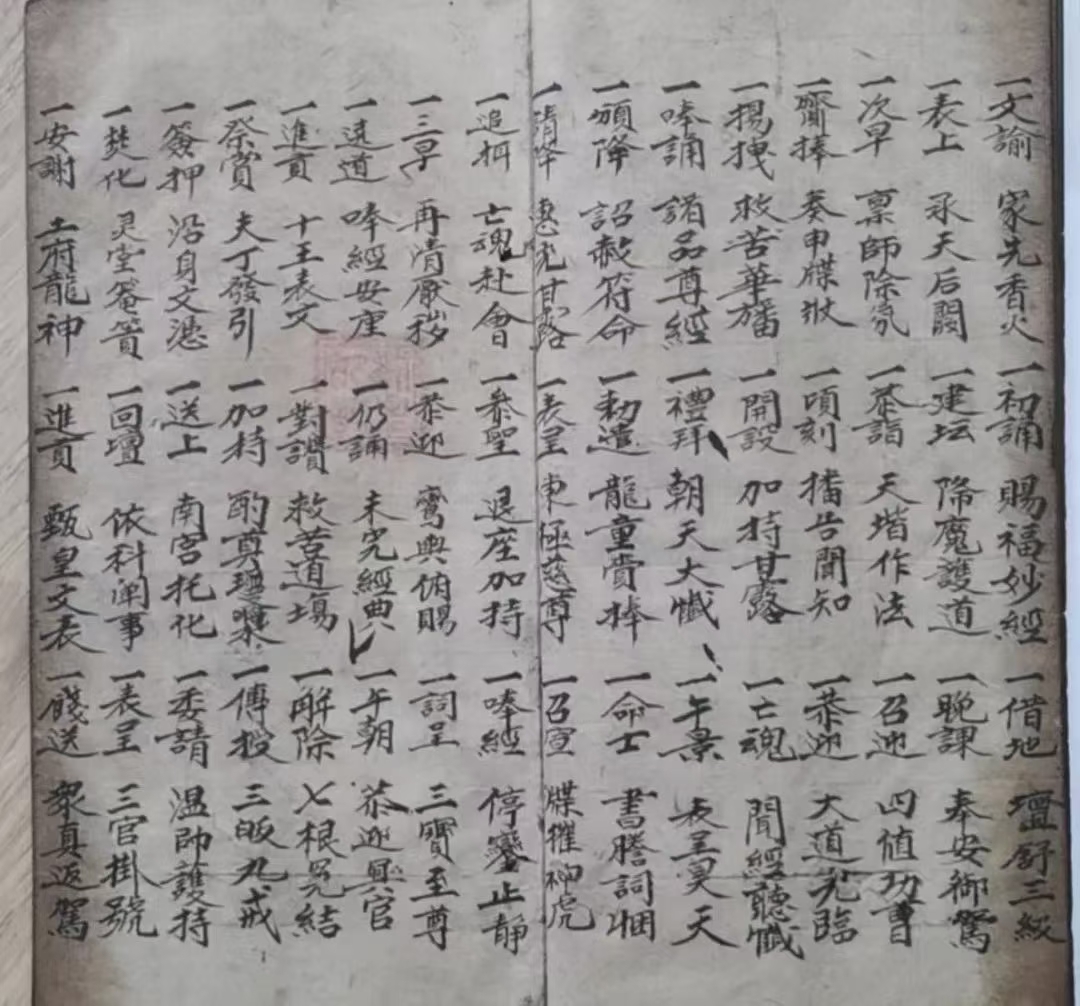 一文諭 家先香火 一初誦 賜福妙經 一借地 壇舒三級
一表上 承天后闕 一建坛 降魔護道 一晚課 奉安御駕
一次早 禀師除氛 一恭詣 天堦作法 一召迎 四值功曹
一齊捧 奏申牒狀 一頃刻 播告聞知 一恭迎 大道光臨
一揚拽 救苦華旛 一開設 加持甘露 一亡魂 聞經聽懺
一唪誦 諸品尊經 一禮拜 朝天大懺 一午景 表呈昊天
一頒降 詔赦符命 一勅遣 龍童賫捧 一命士 書謄詞悃
一請降 惠光甘露 一表呈 東極慈尊 一召宣 牒催神虎
一追招 亡魂赴會 一參聖 退座加持 一唪經 停鑾止静
一三早 再清厭穢 一恭迎 鸞輿俯賜 一詞呈 三寳至尊
一遶道 唪經安座 一仍誦 未完經典 一午朝 恭迎 官
一進貢 十王表文 一對讃 救苦道場 一解除 七根冤結
一祭賞 夫丁發引 一加持 酌奠 一傳授 三皈九戒
一簽押 沿身文憑 一送上 南宮托化 一委請 温帥護持
一焚化 灵堂菴 一回壇 依科闡事 一表呈 三官掛號
一安謝 土府龍神 一進貢 甄皇文表 一餞送 衆真返駕